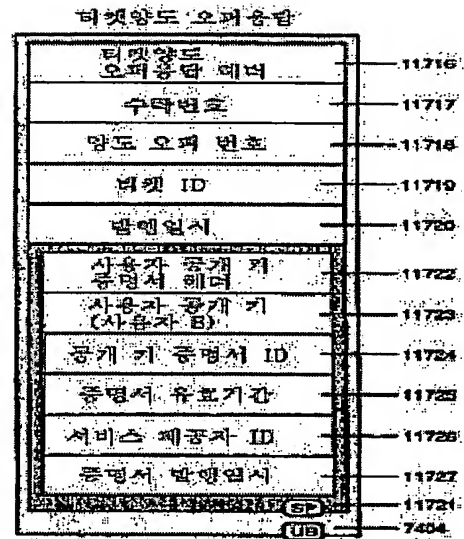 티켓양도 오퍼응답
티켓양도
오퍼응답 헤더
11716
수락번호
11717
양도 오퍼 번호
11718
티켓 ID
11719
발행일시
11720
사용자 공개 키
증명서 헤더
11722
사용자 공개 키
(사용자 B)
11723
공개 키 증명서 ID
11724
증명서 유효기간
11725
서비스 제공자 ID
11726
증명서 발행일시
11727
SP
11721
UB
7404